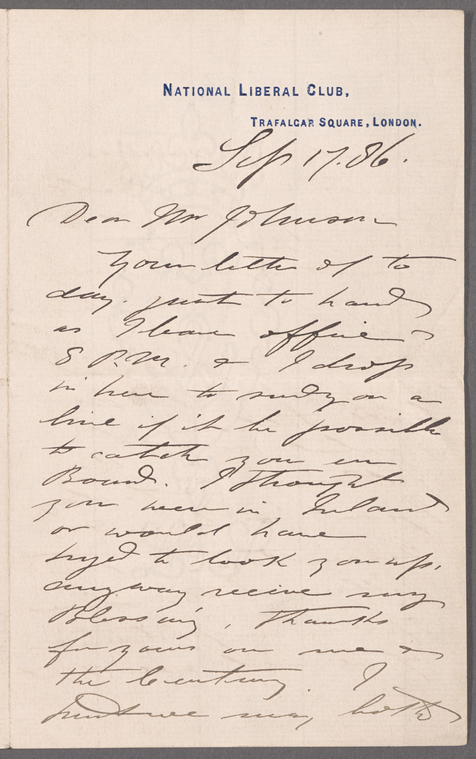 NATIONAL LIBERAL CLUB,
TRAFALGAR SQUARE, LONDON.
Sep 17. 86.
Dear Mr Johnson
Your letter of to
day. just to hand
as I leave office
8 P.M. & I drop
in here to send you a
line if it be possible
to catch you en
Board. I thought
you were in Inland
or would have
tryed to look you up.
anyway receive my
Blessing, Thanks
for yours on me &
the Century. I
trust we may both